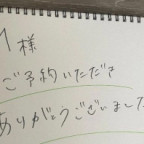 様
ご予約いただき
ありがとうございました